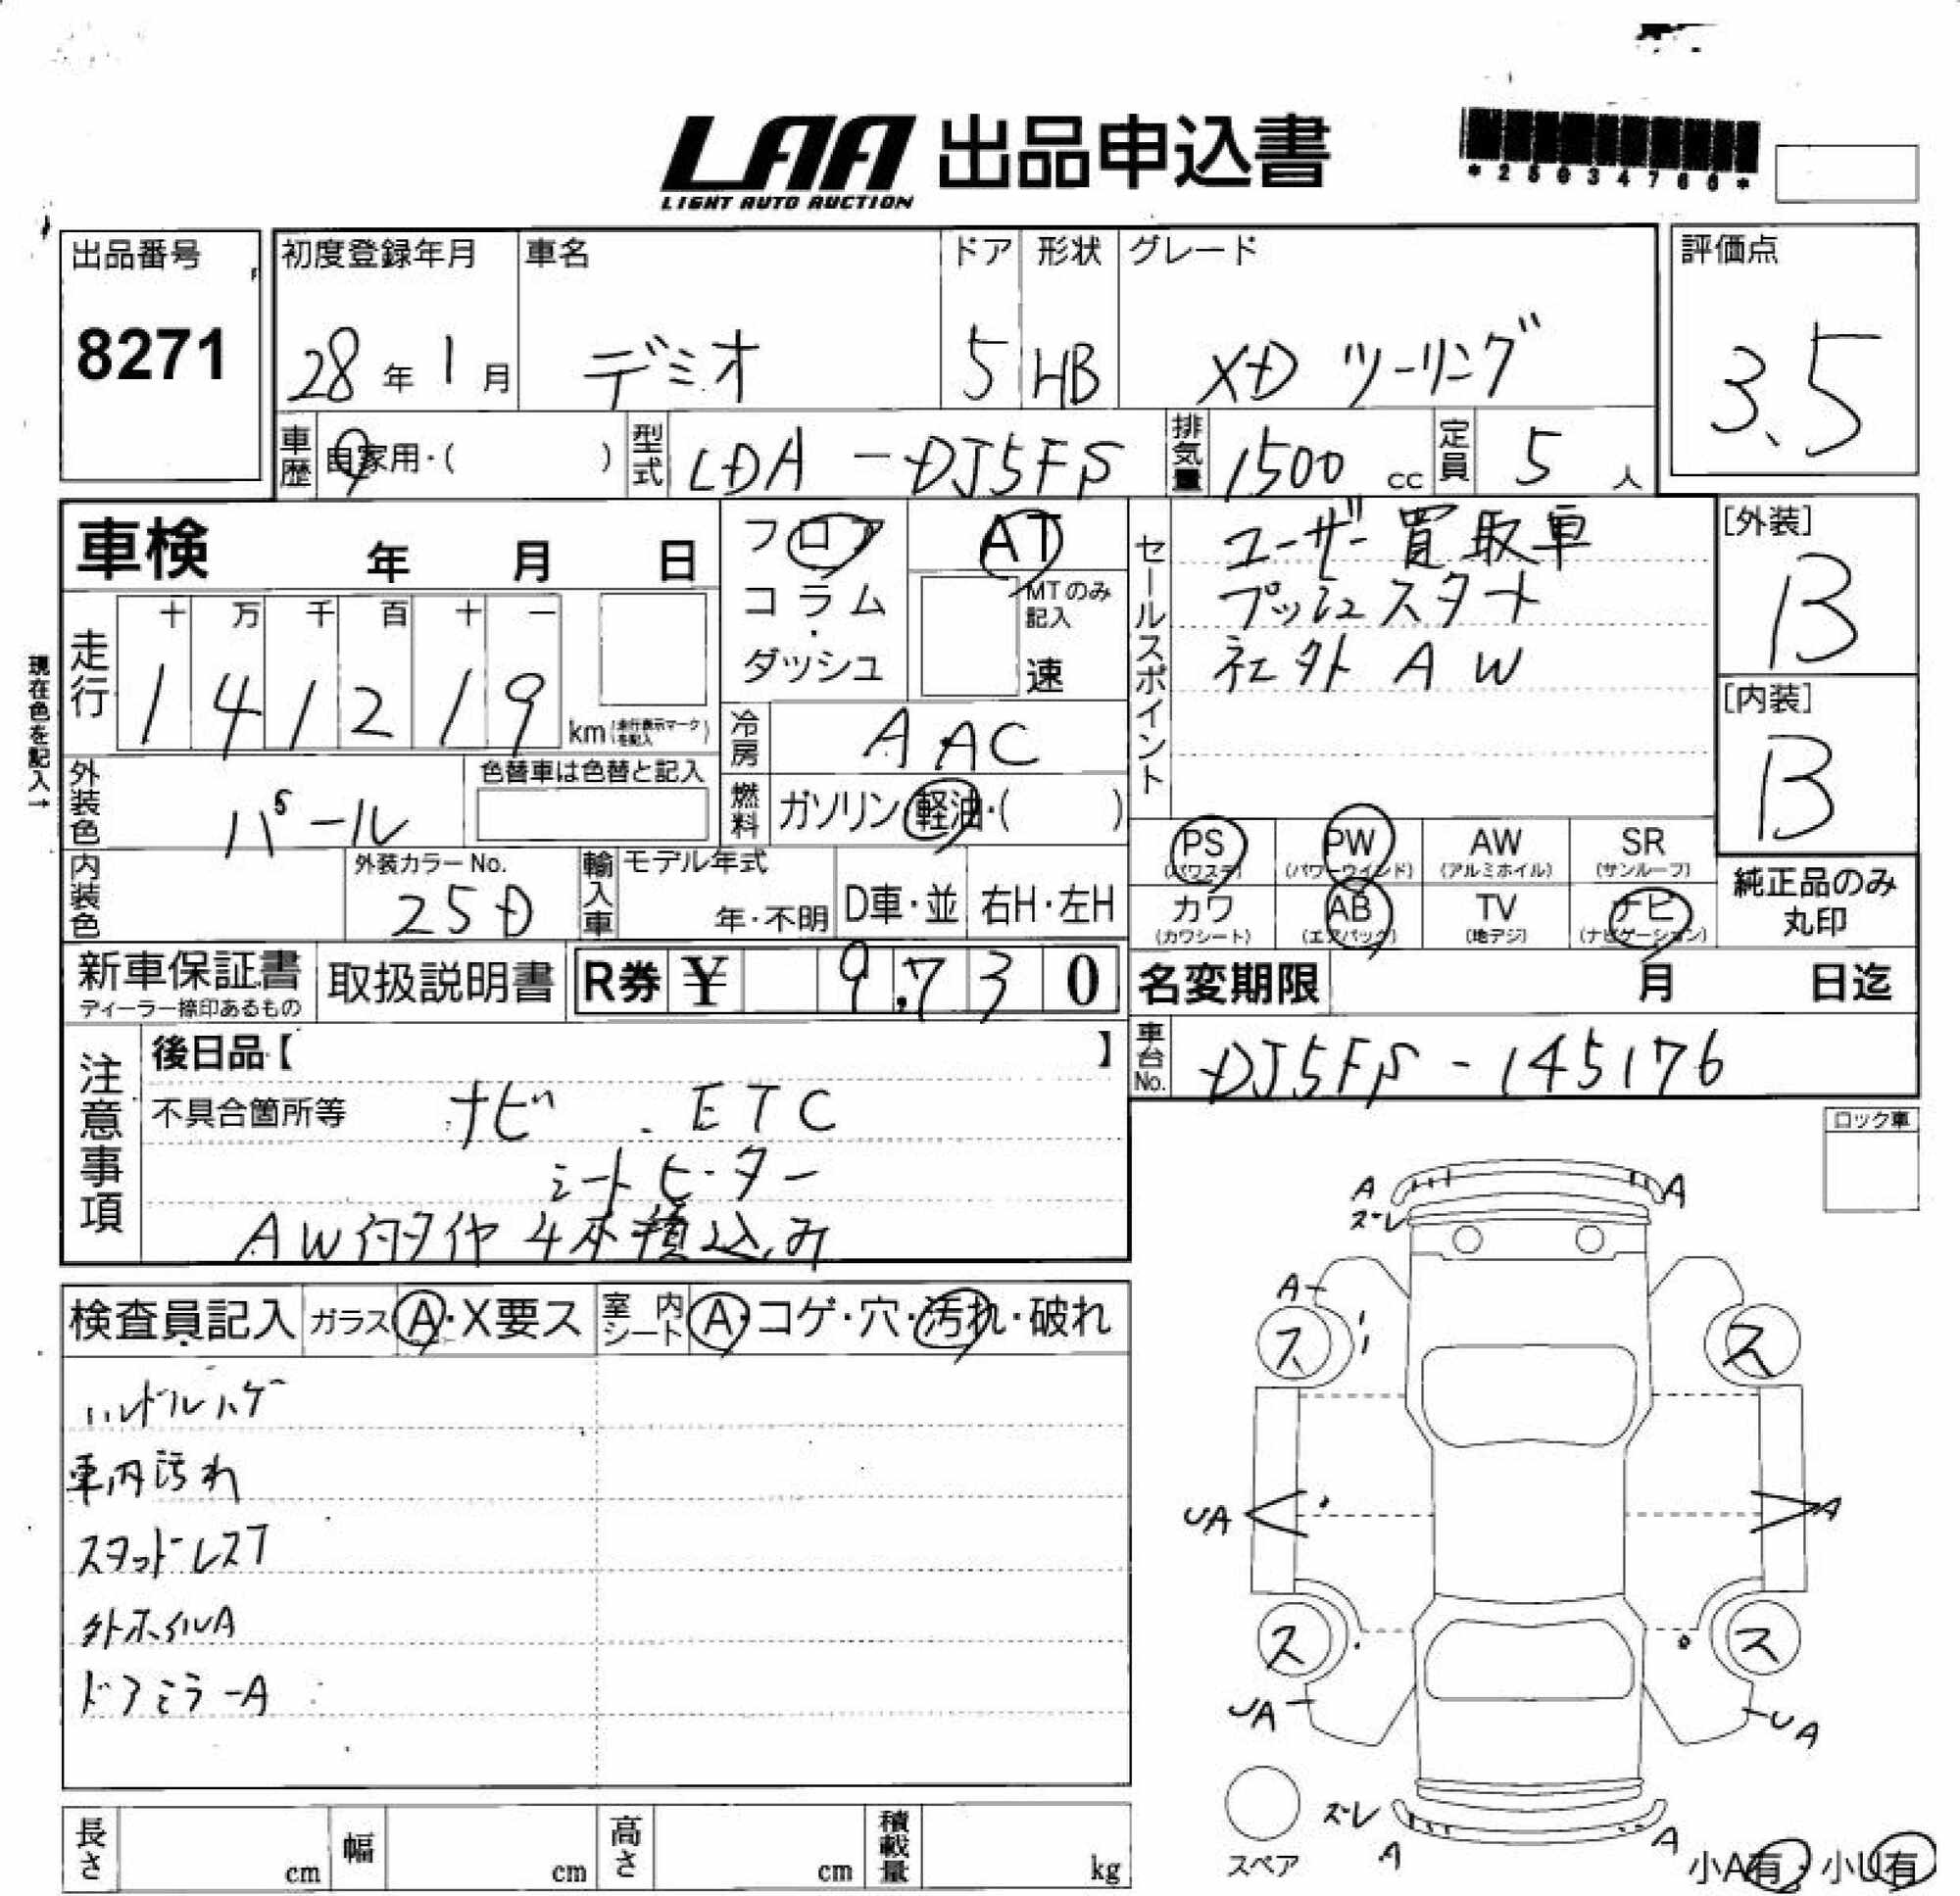 LAA 出品申込書
LIGHT AUTO AUCTION
*25034766*
出品番号
8271
初度登録年月
28年 1月
車名
デミオ
ドア
5
形状
HB
グレード
XD ツーリング
評価点
3.5
車歴
自家用・( )
型式
LDA-DJ5FS
排気量
1500 cc
定員
5人
車検 年 月 日
現在色を記入→
走行
十 万 千 百 十 一
1 4 1 2 1 9 km (走行表示マークを記入)
フロア
コラム
・
ダッシュ
AT
MTのみ記入
速
冷房
AAC
燃料
ガソリン・軽油・( )
セールスポイント
ユーザー買取車
プッシュスタート
社外AW
[外装]
B
[内装]
B
外装色
パール
色替車は色替と記入
内装色
外装カラーNo.
25D
輸入車
モデル年式
年・不明
D車・並
右H・左H
PS (パワステ)
PW (パワーウインド)
AW (アルミホイル)
SR (サンルーフ)
カワ (カワシート)
AB (エアバック)
TV (地デジ)
ナビ (ナビゲーション)
純正品のみ
丸印
新車保証書
ディーラー捺印あるもの
取扱説明書
R券 ¥ 9,730
名変期限 月 日迄
車台No.
DJ5FS-145176
注意事項
後日品【 】
不具合箇所等 ナビ . ETC
シートヒーター
AW付タイヤ4本積込み
ロック車
検査員記入
ガラス A・X要ス
室内シート A・コゲ・穴・汚れ・破れ
ハンドルハゲ
車内汚れ
スタッドレスT
外ホイルA
ドアミラーA
A
ズレ
A
A
ス
ス
UA
A
ス
ス
UA
UA
スペア
ズレ
A
A
小A有・小U有
長さ cm
幅 cm
高さ cm
積載量 kg